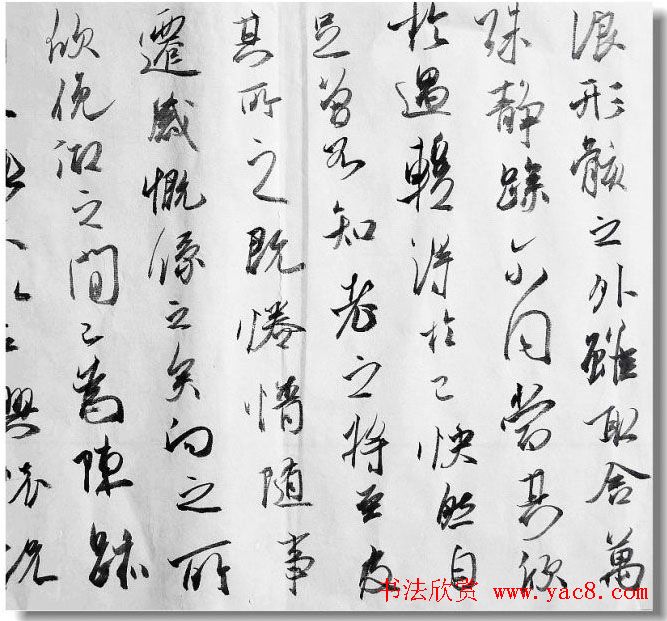 浪形骸之外雖取舍萬
殊静躁不同當其欣
於遇暫得於己快然自
足曾不知老之將至及
其所之既惓情随事
遷感慨係之矣向之所
欣俛仰之間已為陳跡
興懷况
书法欣赏 www.yac8.com